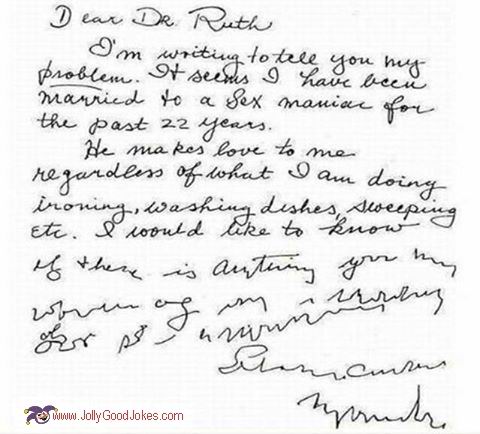 Dear Dr. Ruth
I'm writing to tell you my
problem. It seems I have been
married to a sex maniac for
the past 22 years.
He makes love to me
regardless of what I am doing
ironing, washing dishes, sweeping
etc. I would like to know
if there is anything you may
www.JollyGoodJokes.com